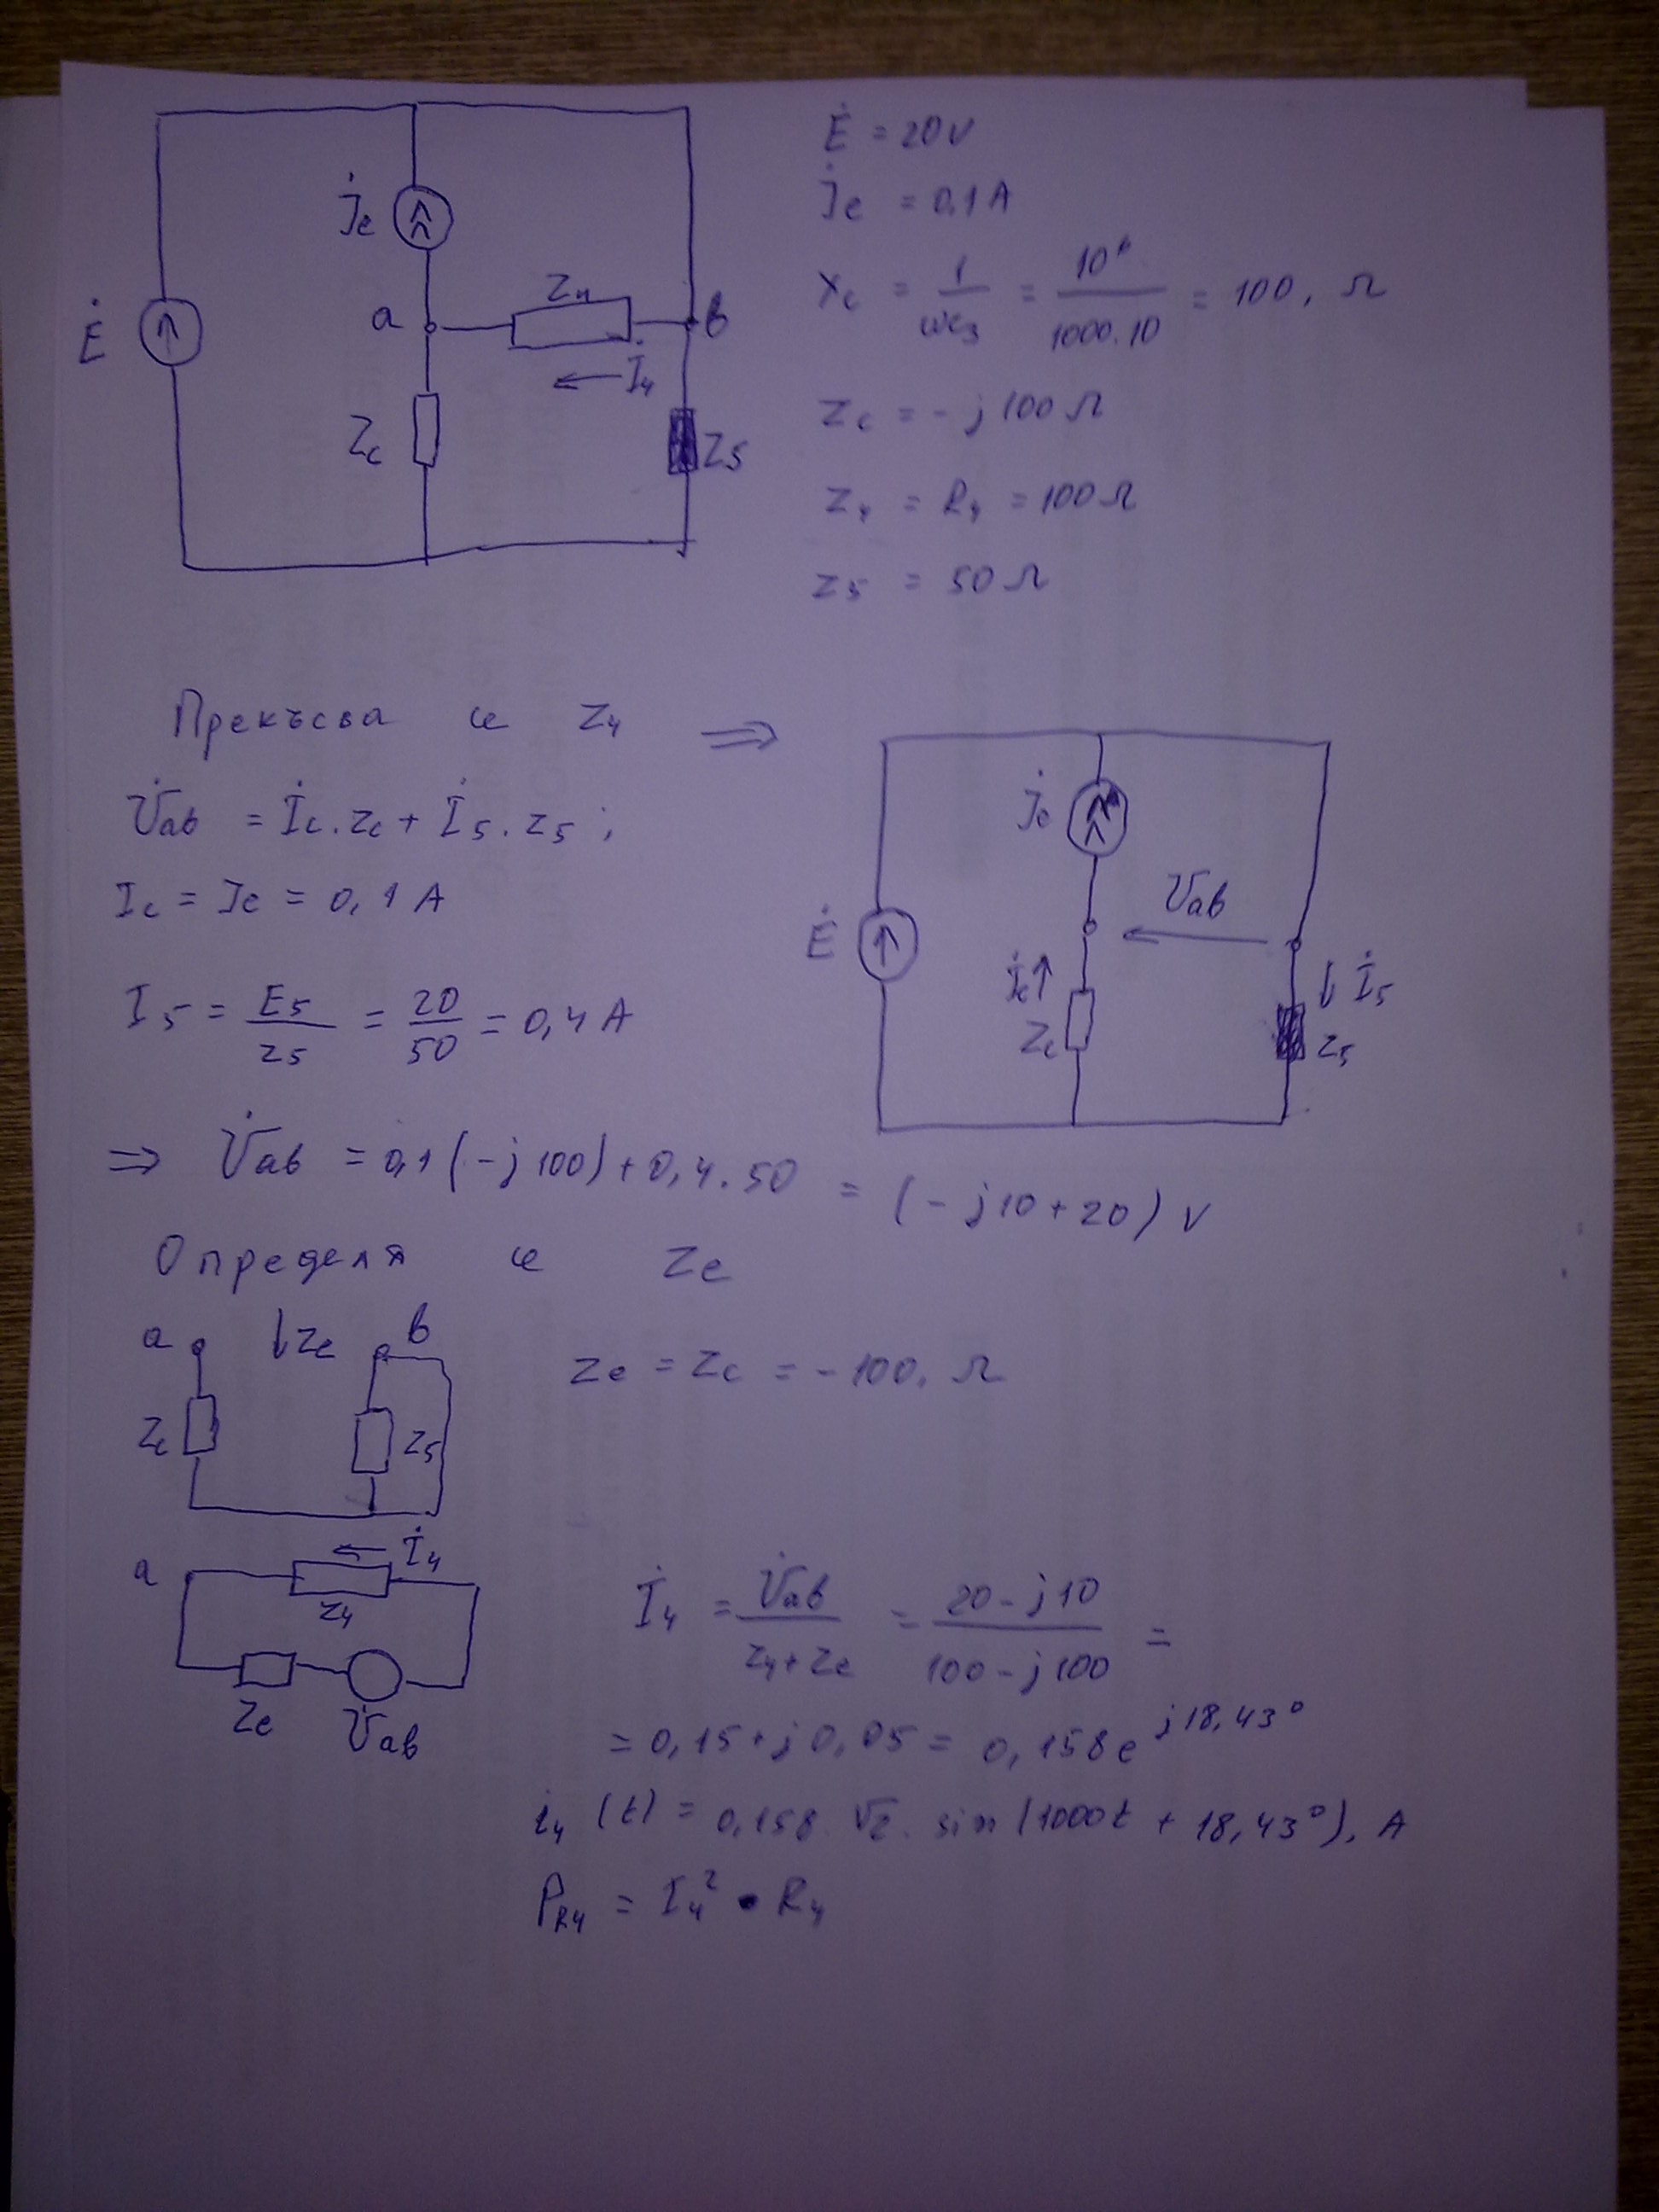 Ė = 20V
J̇e = 0,1 A
Xc = 1/ωC3 = 10⁶/1000.10 = 100, Ω
Zc = -j100 Ω
Z4 = R4 = 100 Ω
Z5 = 50 Ω
Ė
J̇e
a
Z4
в
İ4
Zc
Z5
Прекъсва се Z4 ⇒
U̇ав = İc.Zc + İ5.Z5;
Ic = Je = 0,1 A
I5 = E5/Z5 = 20/50 = 0,4 A
Ė
J̇e
U̇ав
İc
Zc
İ5
Z5
⇒ U̇ав = 0,1(-j100) + 0,4.50 = (-j10+20) V
Определя се Ze
a
Ze
в
Zc
Z5
Ze = Zc = -100, Ω
a
İ4
Z4
Ze
U̇ав
İ4 = U̇ав/Z4+Ze = 20-j10/100-j100 =
= 0,15+j0,05 = 0,158e^j18,43°
i4(t) = 0,158.√2.sin(1000t + 18,43°), A
PR4 = I4² • R4